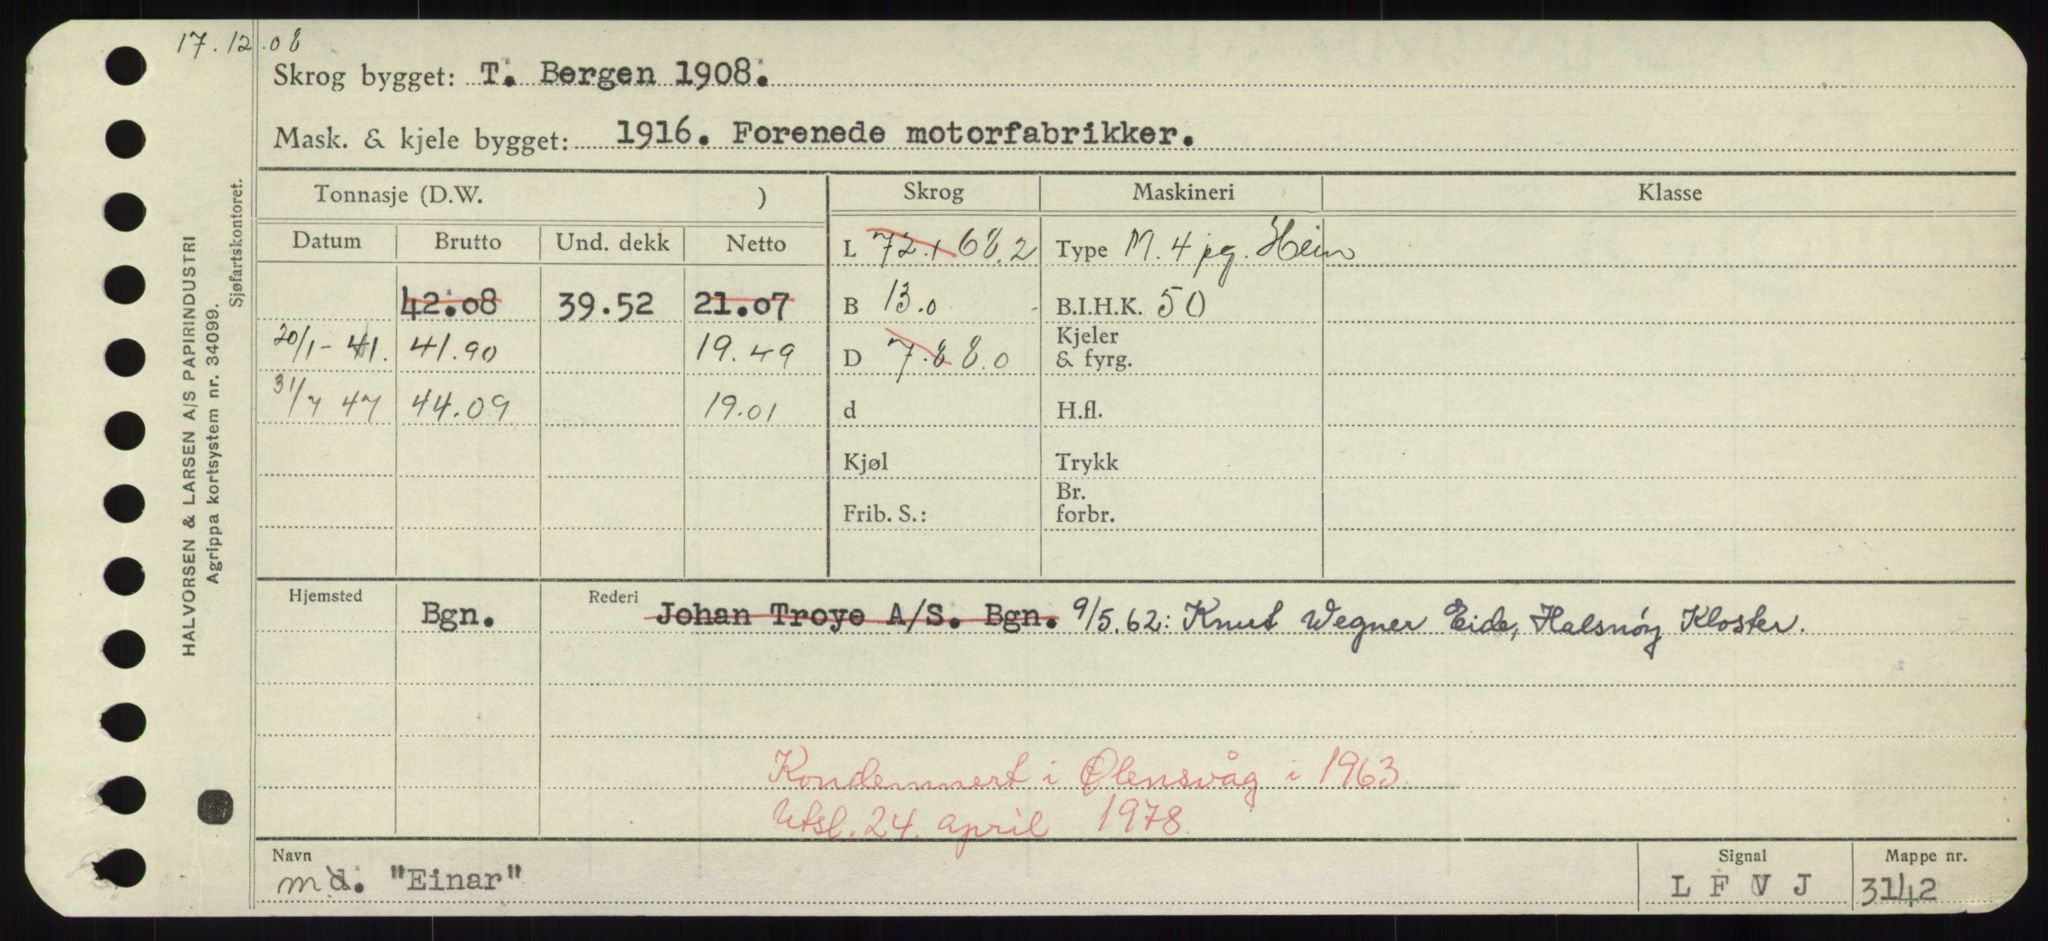 17.12.08
Skrog bygget: T. Bergen 1908.
Mask. & kjele bygget: 1916. Forenede motorfabrikker.
HALVORSEN & LARSEN A/S PAPIRINDUSTRI
Agrippa kortsystem nr. 34099.
Sjøfartskontoret.
Tonnasje (D.W. ) Skrog Maskineri Klasse
Datum Brutto Und. dekk Netto L 72.1 68.2 Type M. 4 pg. Hein
42.08 39.52 21.07 B 13.0 B.I.H.K. 50
20/1-41. 41.90 19.49 D 7.8 8.0 Kjeler & fyrg.
31/7 47 44.09 19.01 d H.fl.
Kjøl Trykk
Frib. S.: Br. forbr.
Hjemsted Bgn. Rederi Johan Troye A/S. Bgn. 9/5.62: Knut Wegner Eide, Halsnøy Kloster.
Kondemnert i Ølensvåg i 1963.
Utsl. 24. april 1978.
Navn Signal Mappe nr.
md. "Einar" L F V J 3142